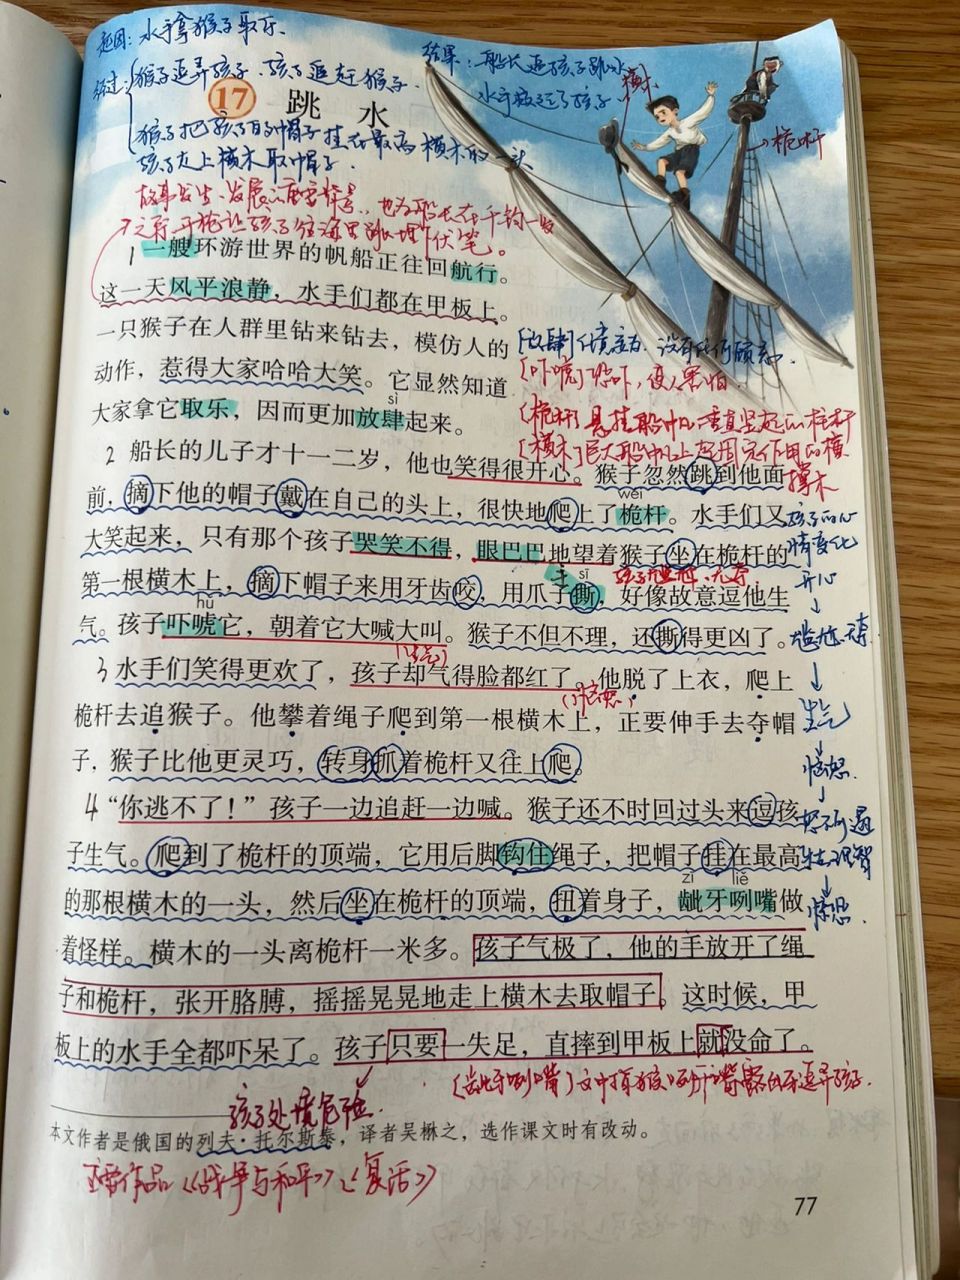 起因：水手拿猴子取乐
经过：猴子逗弄孩子、孩子追赶猴子.
结果：船长逼孩子跳水
水手救起了孩子.
横木
17 跳水
猴子把孩子的帽子挂在最高横木的一头
孩子走上横木取帽子.
→桅杆
故事发生、发展
也为船长在千钧一发
之际开枪让孩子往海里跳埋下伏笔。
1 一艘环游世界的帆船正往回航行。
这一天风平浪静，水手们都在甲板上。
一只猴子在人群里钻来钻去，模仿人的
动作，惹得大家哈哈大笑。它显然知道
sì
大家拿它取乐，因而更加放肆起来。
[放肆]任意妄为、没有任何顾忌.
[吓唬]恐吓，使人害怕.
[桅杆]悬挂船帆
[横木]
横木
2 船长的儿子才十一二岁，他也笑得很开心。猴子忽然跳到他面
wéi
前，摘下他的帽子戴在自己的头上，很快地爬上了桅杆。水手们又
大笑起来，只有那个孩子哭笑不得，眼巴巴地望着猴子坐在桅杆的
手 sī
第一根横木上，摘下帽子来用牙齿咬，用爪子撕，好像故意逗他生
hǔ
气。孩子吓唬它，朝着它大喊大叫。猴子不但不理，还撕得更凶了。
(生气)
3 水手们笑得更欢了，孩子却气得脸都红了。他脱了上衣，爬上
桅杆去追猴子。他攀着绳子爬到第一根横木上，正要伸手去夺帽
子，猴子比他更灵巧，转身抓着桅杆又往上爬。
4 “你逃不了！”孩子一边追赶一边喊。猴子还不时回过头来逗孩
子生气。爬到了桅杆的顶端，它用后脚钩住绳子，把帽子挂在最高
zī liě
的那根横木的一头，然后坐在桅杆的顶端，扭着身子，龇牙咧嘴做
着怪样。横木的一头离桅杆一米多。孩子气极了，他的手放开了绳
子和桅杆，张开胳膊，摇摇晃晃地走上横木去取帽子。这时候，甲
板上的水手全都吓呆了。孩子只要一失足，直摔到甲板上就没命了。
孩子的心
情变化
开心
↓
尴尬无奈
↓
生气
↓
恼怒.
↓
怒不可遏
失去理智
↓
惊恐.
孩子处境危险.
本文作者是俄国的列夫·托尔斯泰，译者吴楙之，选作课文时有改动。
主要作品《战争与和平》《复活》
77